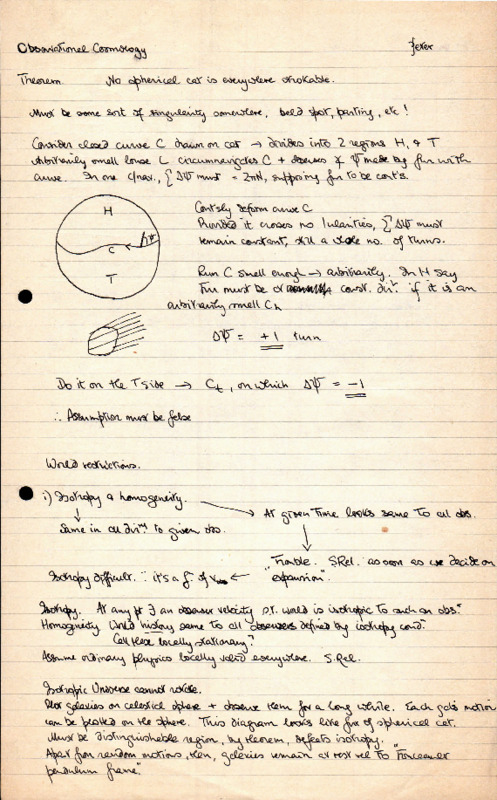 Observational Cosmology
Theorem No spherical cat is everywhere strokable.
Must be some sort of singularity somewhere, bald spot, parting, etc!
Consider closed curve C drawn on cat → divides into 2 regions H, & T
Arbitrarily small louse L circumnavigates C + observes ∡ Ψ made by fur with
curve. In one c/nav., ∑ΔΨ must = 2πN, supposing fur to be cont's.
H
C
Ψ
T
Contsly deform curve C
Provided it crosses no lularities, ∑ΔΨ must
remain constant, still a whole no. of turns.
Run C small enough → arbitrarily. In H say
Fur must be const. dirn. if it is an
arbitrarily small Ch
ΔΨ = +1 turn
Do it on the T side → Ct, on which ΔΨ = -1
∴ Assumption must be false
World restrictions.
i) Isotropy & homogeneity.
Same in all dirns to given obs.
At given Time looks same to all obs.
"Trouble. S.Rel. as soon as we decide on
expansion".
Isotropy difficult. ∵ it's a f of ←
Isotropy. At any pt ∃ an observer velocity s.t. world is isotropic to such an obs."
Homogeneity World history same to all observers defined by isotropy cond.
Call these locally stationary."
Assume ordinary physics locally valid everywhere. S.Rel.
Isotropic Universe cannot rotate.
Plot galaxies on celestial sphere + observe them for a long while. Each gal's motion
can be plotted on the sphere. This diagram looks like fur of spherical cat.
Must be distinguishable region, by theorem, defeats isotropy.
Apart from random motions, then, galaxies remain at rest rel to "Foreamer
pendulum frame."